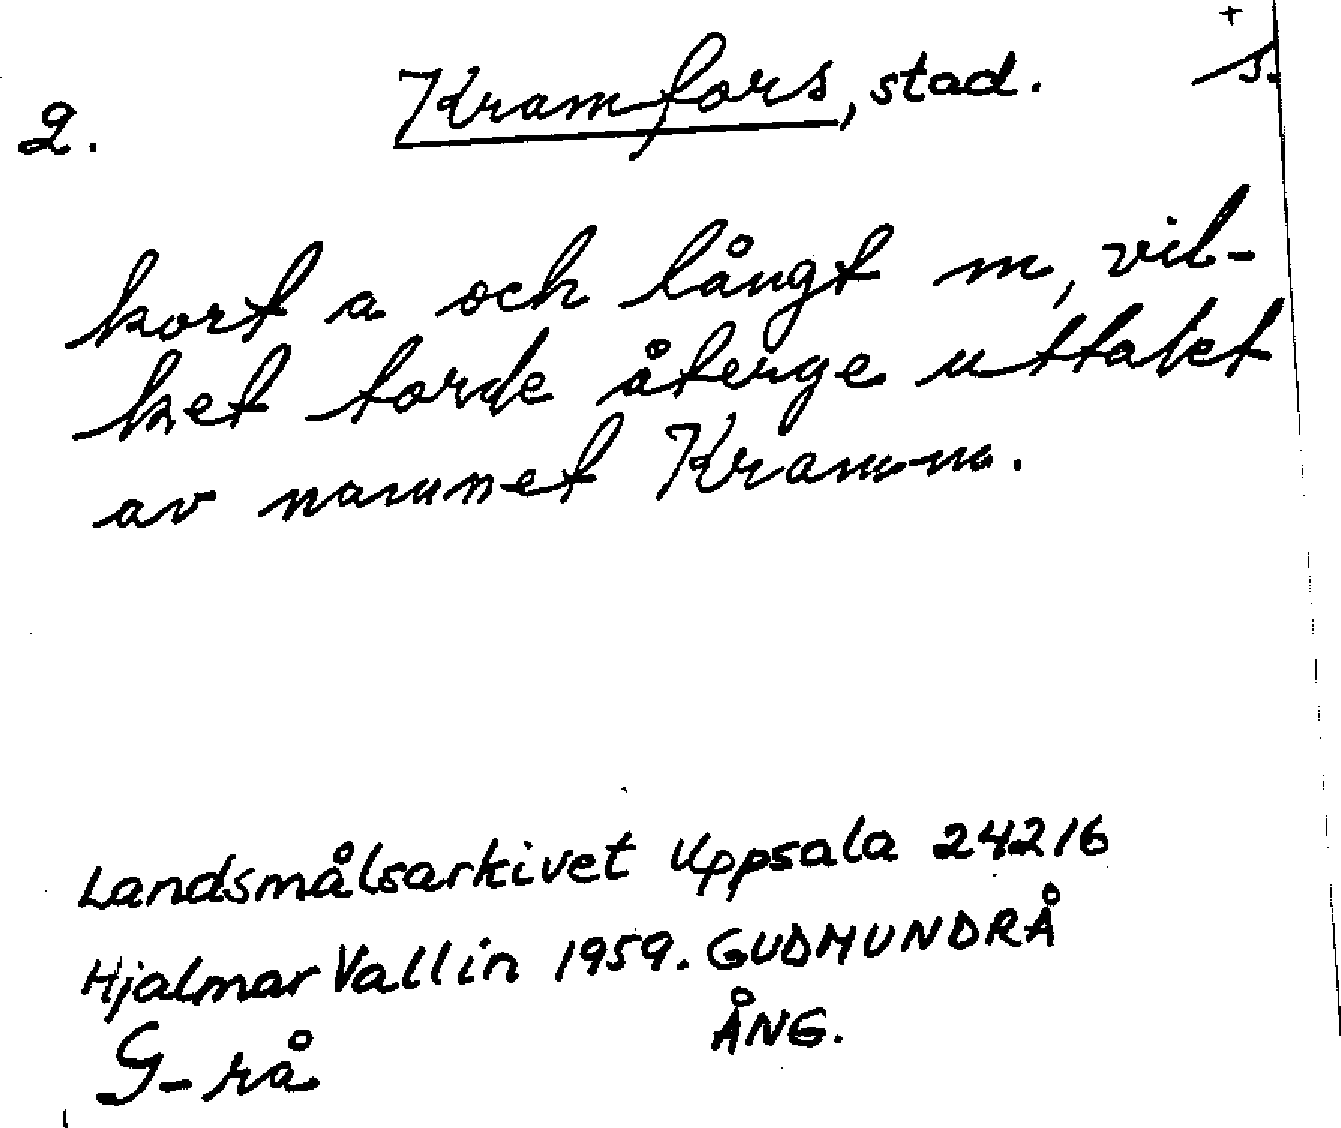 2. Kramfors, stad. s.
kort a och långt m, vil-
ket torde återge uttalet
av namnet Kramm.
Landsmålsarkivet Uppsala 24216
Hjalmar Vallin 1959. GUDMUNDRÅ
ÅNG.
G-rå